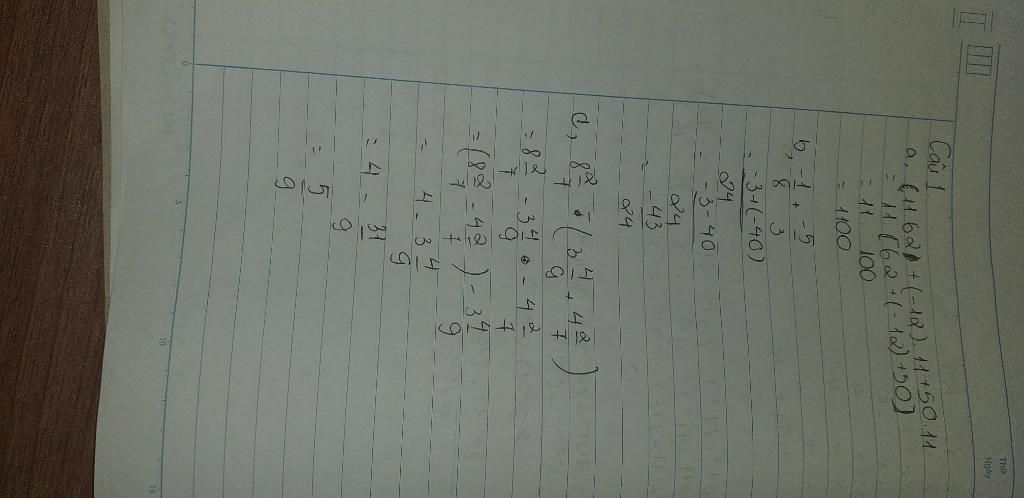 Thứ
Ngày
Câu 1
a, (11.62) + (-12).11 + 50.11
= 11 (62 + (-12) + 50)
= 11 . 100
= 1100
b, -1/8 + -5/3
= -3+(-40)/24
= -3-40/24
= -43/24
c, 8 2/7 - (3 4/9 + 4 2/7)
= 8 2/7 - 3 4/9 - 4 2/7
= (8 2/7 - 4 2/7) - 3 4/9
= 4 - 3 4/9
= 4 - 31/9
= 5/9
0 5 10 15